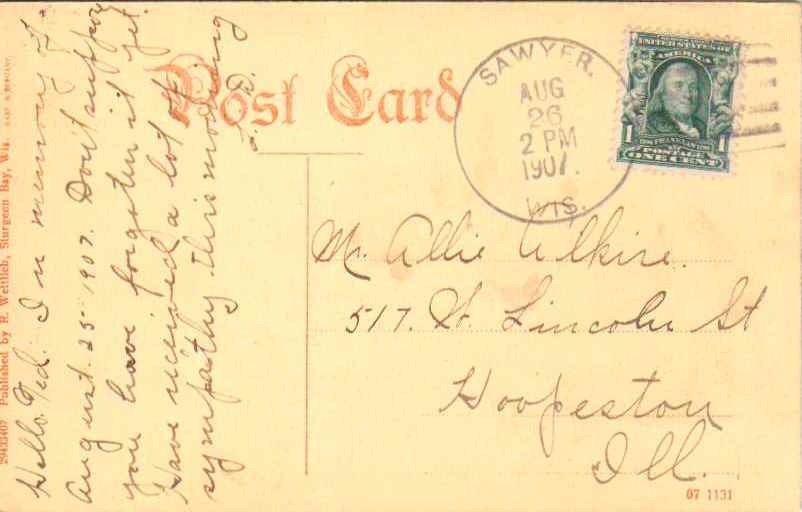 Post Card
SAWYER.
AUG
26
2 PM
1907.
WIS.
UNITED STATES OF
AMERICA
1
1
FRANKLIN
POSTAGE
ONE CENT
Mr. Allie Alkire.
517. W. Lincoln St
Hoopeston
Ill.
07 1131
Hello. Ted. In memory of-
August. 25- 1907. Don't suppose
you have forgotten it yet.
Have received a lot of
sympathy this morning
Published by R. Wettlieb, Sturgeon Bay, Wis.